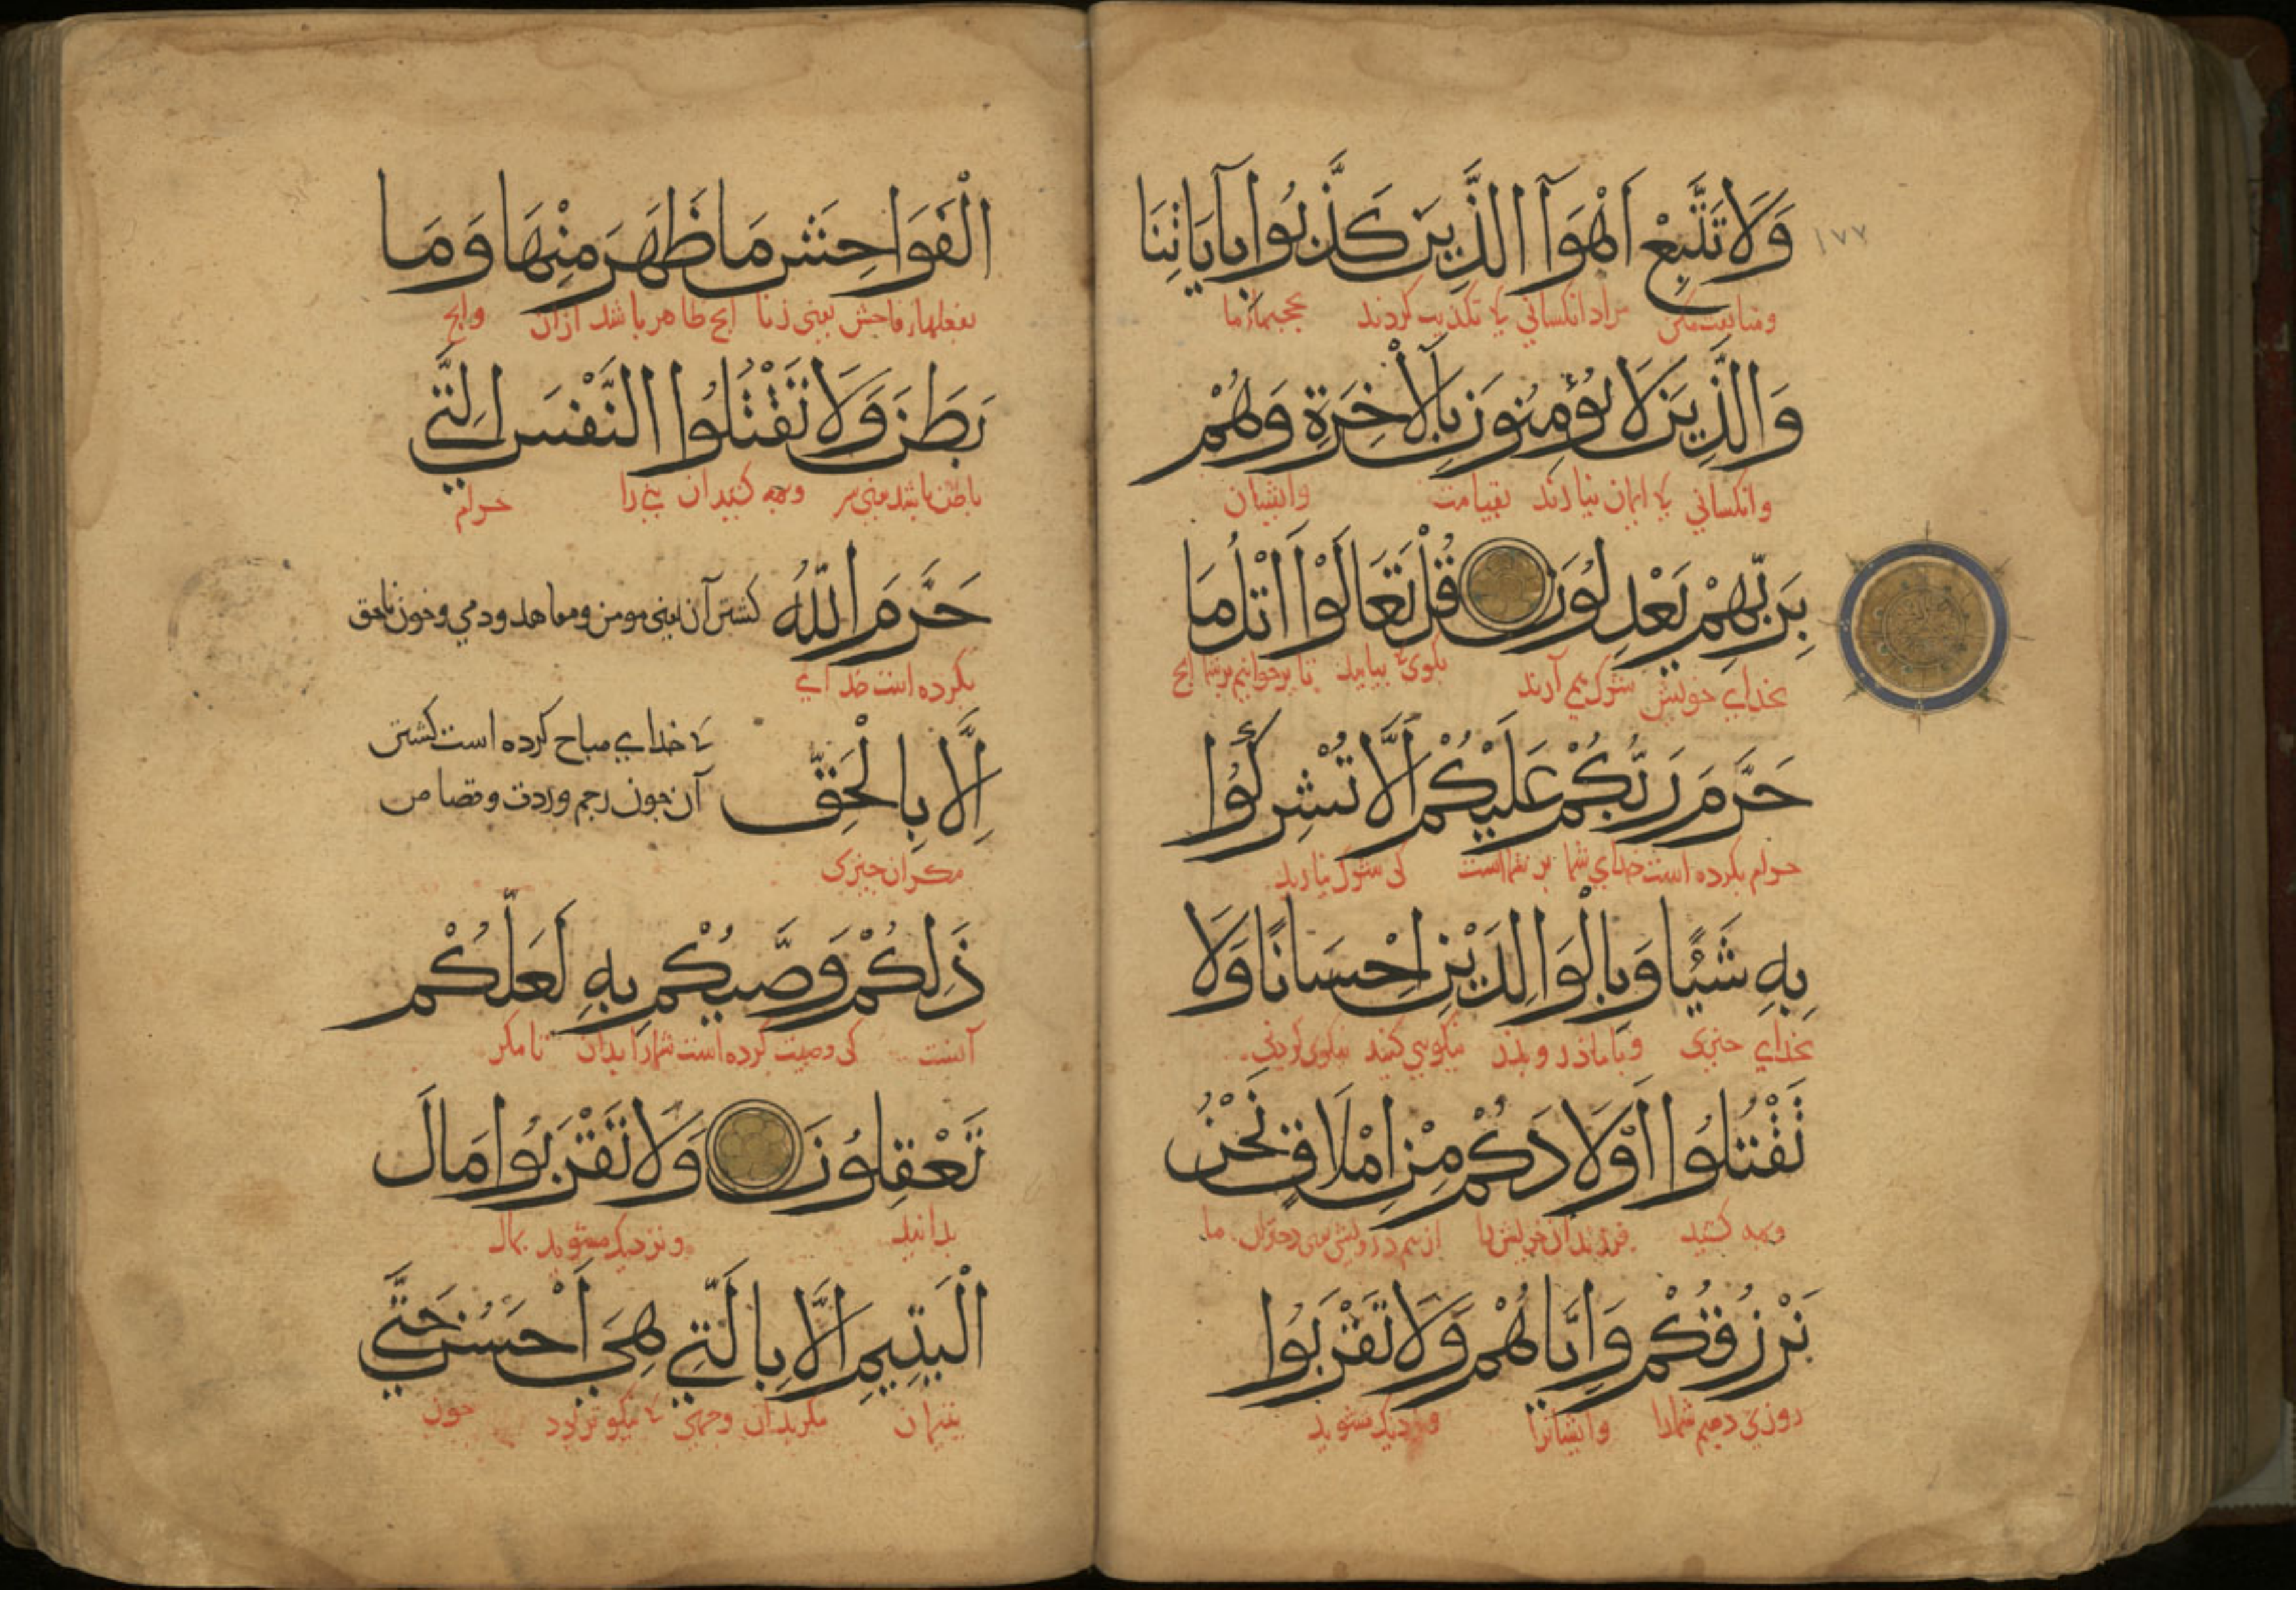 ١٧٧
وَلَا تَتَّبِعْ اَهْوَآ الَّذِينَ كَذَّبُوا بِآيَاتِنَا
ومتابعت مكن مراد انكسانی كی تكذیب كردند بحجتهاء ما
وَالَّذِينَ لَا يُؤْمِنُونَ بِالْآخِرَةِ وَهُمْ
وانكسانی كی ایمان نیارند بقیامت وایشان
بِرَبِّهِمْ يَعْدِلُونَ قُلْ تَعَالَوْا اَتْلُ مَا
بخدای خویش شرك می آرند بگوی بیایید تا برخوانیم برشما انچ
حَرَّمَ رَبُّكُمْ عَلَيْكُمْ اَلَّا تُشْرِكُوا
حرام بكرده است خدای شما بر شما است كی شرك نیارید
بِهِ شَيْئًا وَبِالْوَالِدَيْنِ اِحْسَانًا وَلَا
بخدای چیزی وبا ماذر و پدر نیكویی كنید نیكوی كردنی
تَقْتُلُوا اَوْلَادَكُمْ مِنْ اِمْلَاقٍ نَحْنُ
ومه كشید فرزندان خویش را از بیم درویشی یعنی دختران ما
نَرْزُقُكُمْ وَاِيَّاهُمْ وَلَا تَقْرَبُوا
روزی دهیم شمارا وایشانرا ونزدیك مشوید
الْفَوَاحِشَ مَا ظَهَرَ مِنْهَا وَمَا
بفعلهاء فاحش یعنی زنا انچ ظاهر باشد ازان وانچ
بَطَنَ وَلَا تَقْتُلُوا النَّفْسَ الَّتِي
باطن باشد یعنی سر ومه كشید ان تنی را حرام
حَرَّمَ اللّٰهُ كشتن آن یعنی مومن ومعاهد وذمی وخون ناحق
بكرده است خدای
اِلَّا بِالْحَقِّ كی خدای مباح كرده است كشتن
آن چون رجم وردت وقصاص
مكر ان چیزی
ذَلِكُمْ وَصَّيكُمْ بِهِ لَعَلَّكُمْ
آنست كی وصیت كرده است شمارا بدان تا مكر
تَعْقِلُونَ وَلَا تَقْرَبُوا مَالَ
بدانید ونزدیك مشوید بمال
الْيَتِيمِ اِلَّا بِالَّتِي هِيَ اَحْسَنُ حَتَّى
یتیمان مكر بدان وجهی كی نیكوتر بود چون